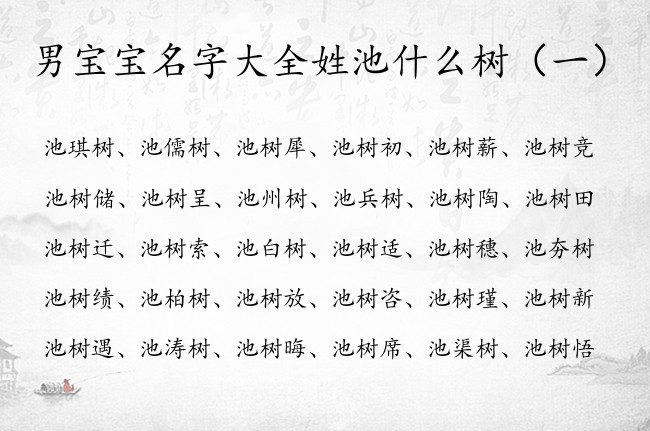 男宝宝名字大全姓池什么树（一）
池琪树、池儒树、池树犀、池树初、池树薪、池树竞
池树储、池树呈、池州树、池兵树、池树陶、池树田
池树迁、池树索、池白树、池树适、池树穗、池夯树
池树绩、池柏树、池树放、池树咨、池树瑾、池树新
池树遇、池涛树、池树晦、池树席、池渠树、池树悟